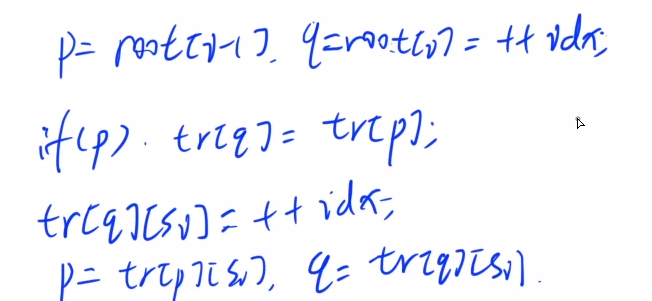 p= root[i-1], q=root[i] = ++ idx;
if(p). tr[q] = tr[p];
tr[q][si] = ++ idx;
p= tr[p][si], q= tr[q][si].